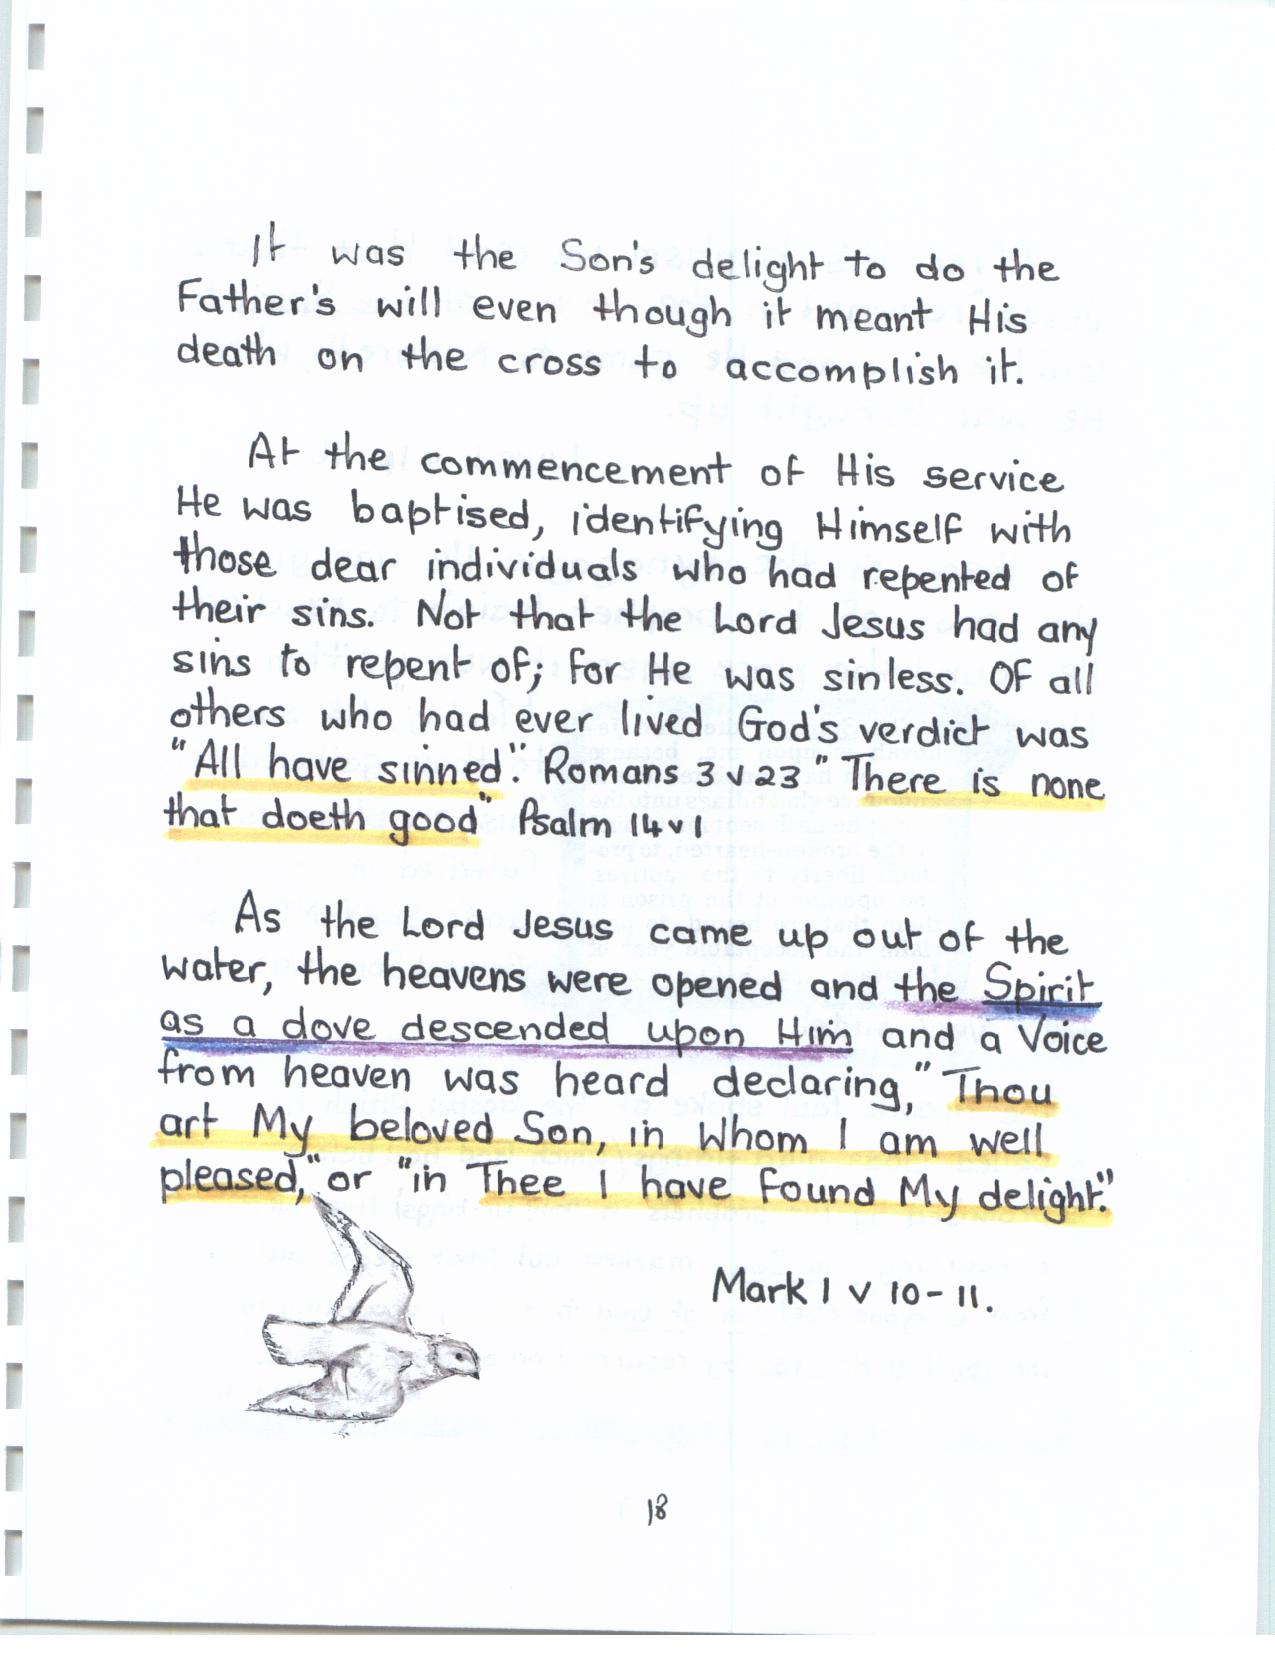 It was the Son's delight to do the
Father's will even though it meant His
death on the cross to accomplish it.
At the commencement of His service
He was baptised, identifying Himself with
those dear individuals who had repented of
their sins. Not that the Lord Jesus had any
sins to repent of; for He was sinless. Of all
others who had ever lived God's verdict was
"All have sinned". Romans 3 v 23 "There is none
that doeth good" Psalm 14 v 1
As the Lord Jesus came up out of the
water, the heavens were opened and the Spirit
as a dove descended upon Him and a Voice
from heaven was heard declaring, "Thou
art My beloved Son, in Whom I am well
pleased," or "in Thee I have found My delight."
Mark 1 v 10-11.
18